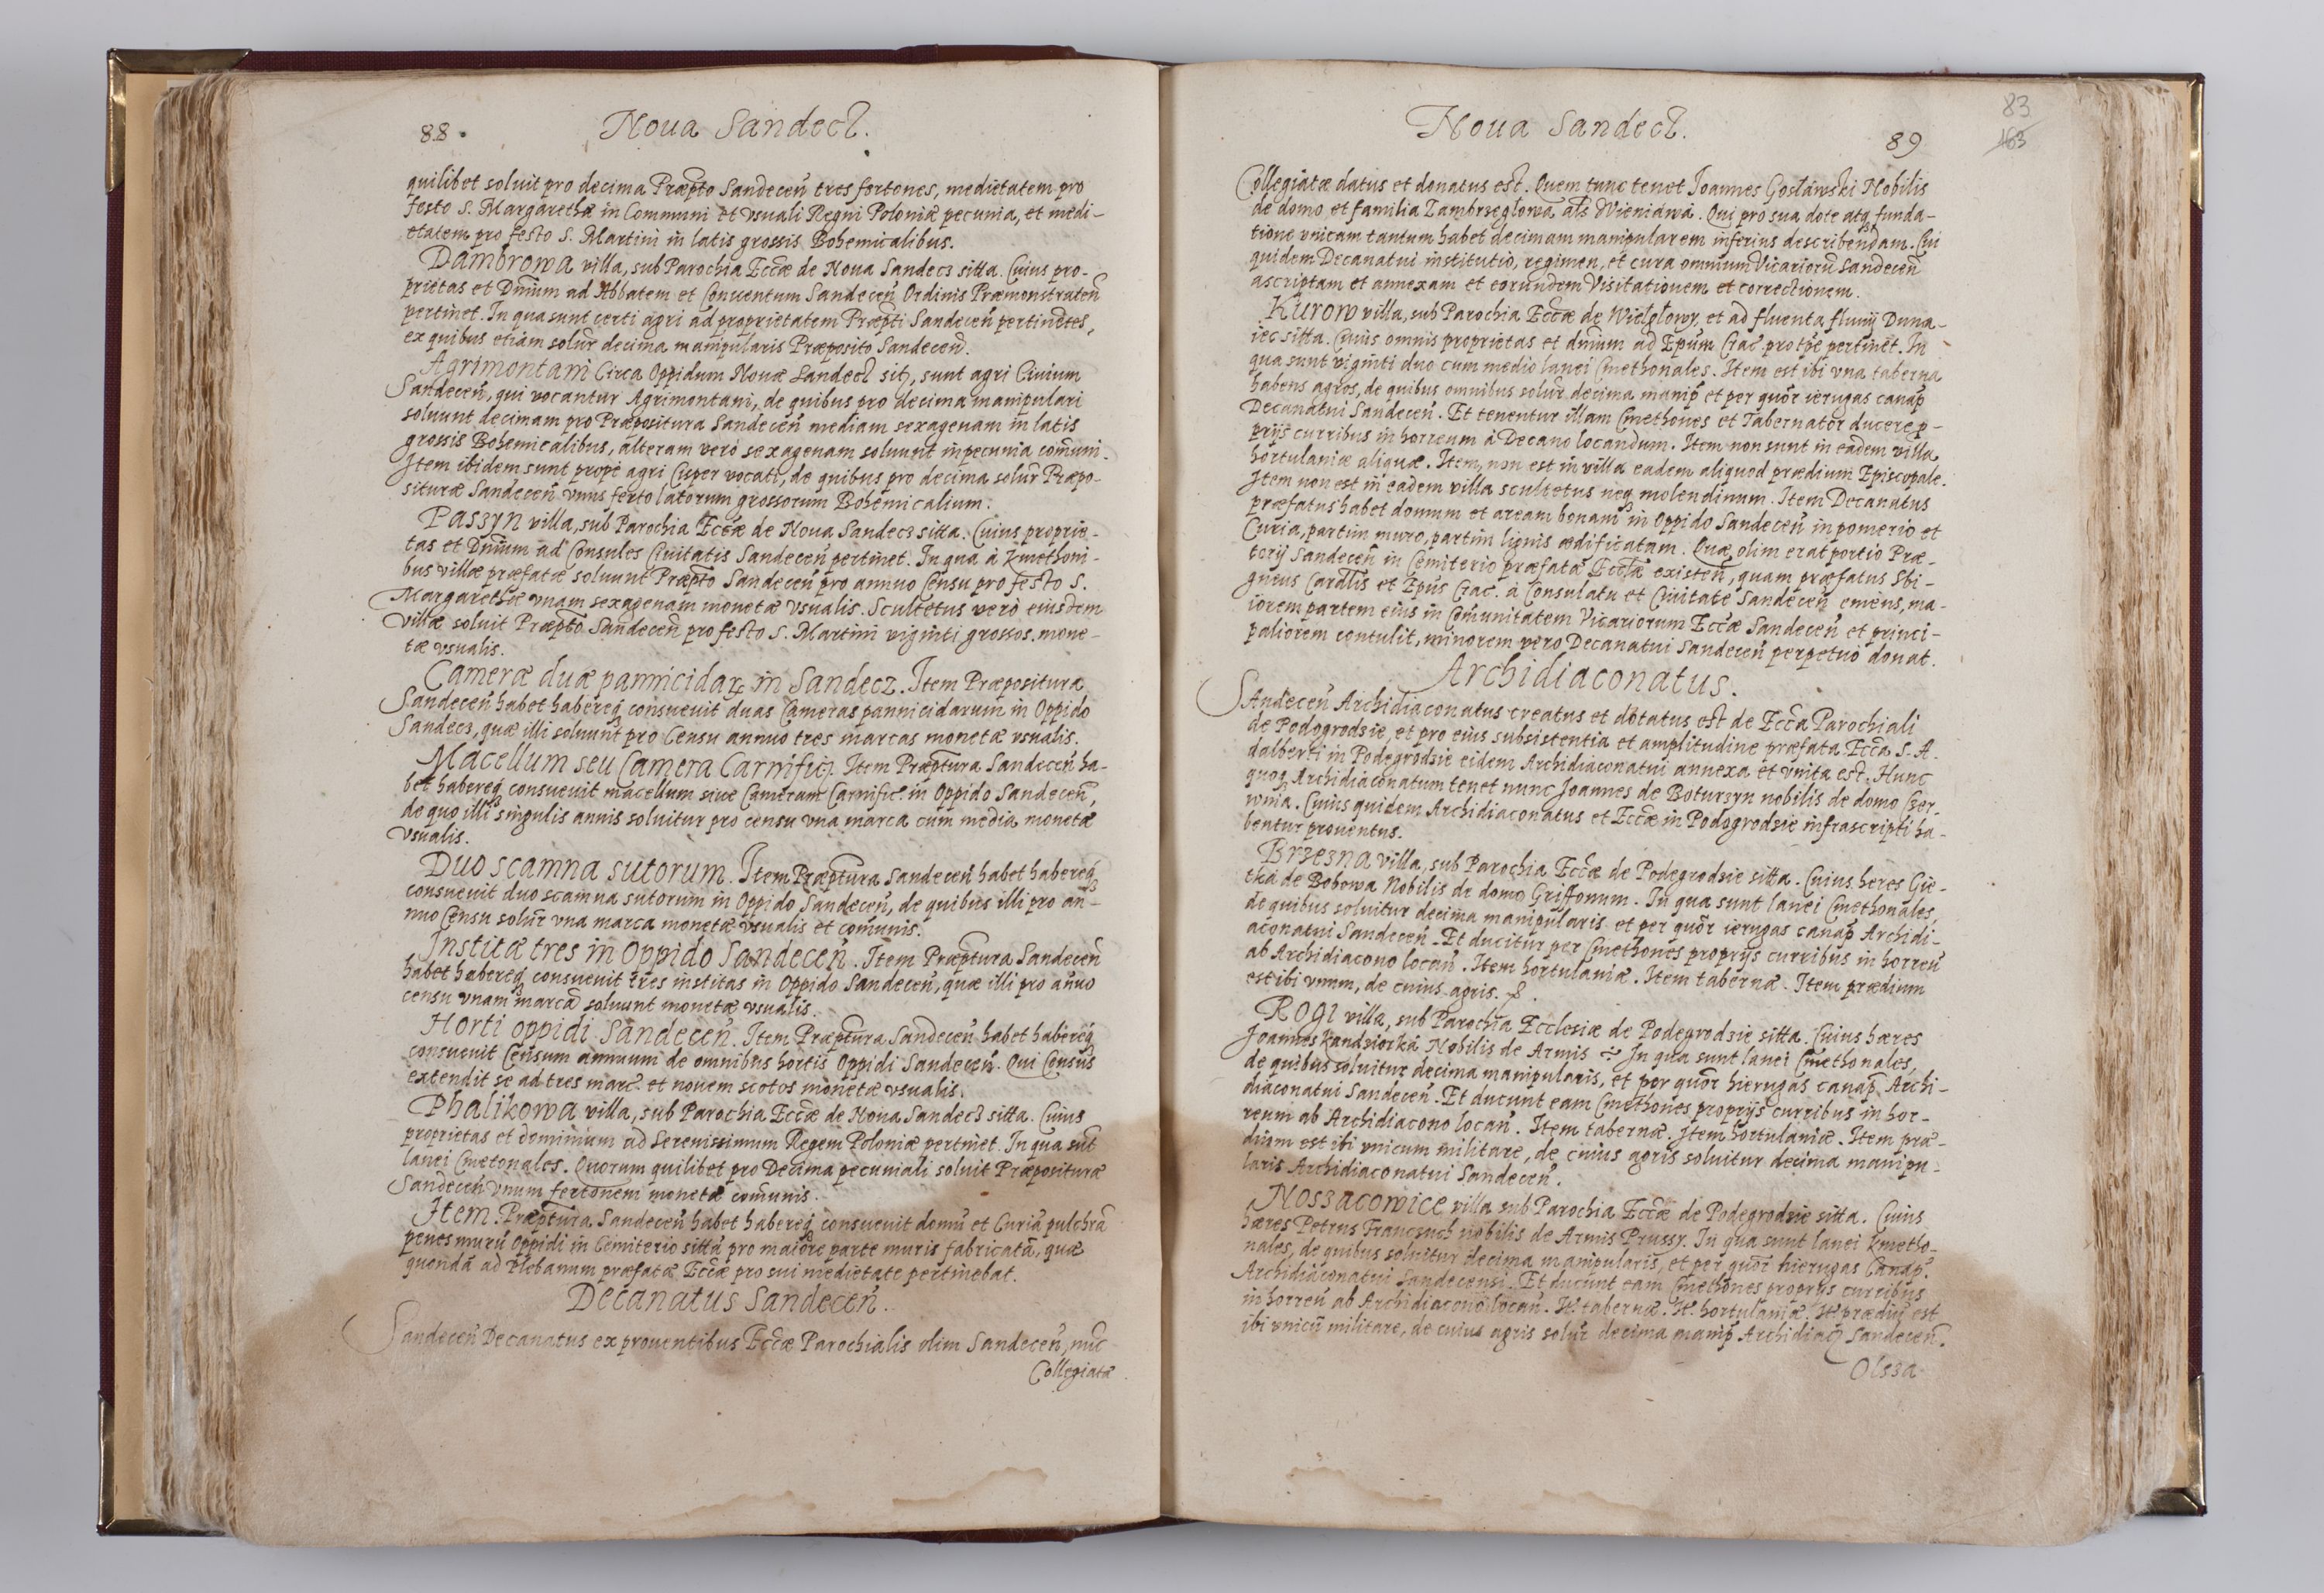 88.
Noua Sandecz.
quilibet soluit pro decima Præpto Sandeceń tres fertones, medietatem pro
festo S. Margarethæ in Communi et vsuali Regni Poloniæ pecunia, et medi-
etatem pro festo S. Martini in latis grossis Bohemicalibus.
Dambrowa villa, sub Parochia Eccæ de Noua Sandecz sitta. Cuius pro-
prietas et Dnium ad Abbatem et Conuentum Sandeceń Ordinis Præmonitrateń
pertinet. In qua sunt certi agri ad proprietatem Præpti Sandeceń pertinetes,
ex quibus etiam solur decima manipularis Præposito Sandeceń.
Agrimontani Circa Oppidum Nouæ Sandecz sit, sunt agri Ciuium
Sandeceń, qui vocantur Agrimontani, de quibus pro decima manipulari
soluunt decimam pro Præpositura Sandeceń mediam sexagenam in latis
grossis Bohemicalibus, alteram vero sexagenam soluunt in pecunia comuni.
Item ibidem sunt prope agri Cisper vocati, de quibus pro decima solur Præpo-
situræ Sandeceń vnus ferto latorum grossorum Bohemicalium.
Paszyn villa, sub Parochia Eccæ de Noua Sandecz sitta. Cuius proprie-
tas et Dnium ad Consules Ciuitatis Sandeceń pertinet. In qua à Kmethoni-
bus villæ præfatæ soluunt Præpto Sandeceń pro annuo Censu pro festo S.
Margarethæ vnam sexagenam monetæ vsualis. Scultetus verò eiusdem
villæ soluit Præpto Sandeceń pro festo S. Martini viginti grossos mone-
tæ vsualis.
Cameræ duæ pannicidar in Sandecz. Item Præpositura
Sandeceń habet habereq consueuit duas Cameras pannicidarum in Oppido
Sandecz, quæ illi soluunt pro Censu annuo tres marcas monetæ vsualis.
Macellum seu Camera Carnific. Item Præptura Sandeceń ha-
bet habereq consueuit macellum siue Cameram Carnific in Oppido Sandeceń,
de quo illi singulis annis soluitur pro censu vna marca cum media monetæ
vsualis.
Duo scamna sutorum. Item Præptura Sandeceń habet habereq
consueuit duo scamna sutorum in Oppido Sandeceń, de quibus illi pro an-
nuo Censu solur vna marca monetæ vsualis et comunis.
Institæ tres in Oppido Sandeceń. Item Præptura Sandeceń
habet habereq consueuit tres institas in Oppido Sandeceń, quæ illi pro ańuo
censu vnam marca soluunt monetæ vsualis.
Horti oppidi Sandeceń. Item Præptura Sandeceń habet habereq
consueuit Censum annuum de omnibus hortis Oppidi Sandeceń. Qui Census
extendit se ad tres marc. et nouem scotos monetæ vsualis.
Phalikowa villa, sub Parochia Eccæ de Noua Sandecz sitta. Cuius
proprietas et dominium ad Serenissimum Regem Poloniæ pertinet. In qua sut
lanei Cmetonales. Quorum quilibet pro Decima pecuniali soluit Præposituræ
Sandeceń vnum fertonem monetæ comunis.
Item. Præptura Sandeceń habet habereq consueuit domu et Curia pulchra
penes muru Oppidi in Cimiterio sitta pro maiore parte muris fabricata, quæ
quonda ad Plebanum præfatæ Eccæ pro sui medietate pertinebat.
Decanatus Sandeceń.
Sandeceń Decanatus ex prouentibus Eccæ Parochialis olim Sandeceń, nuc
Collegiatæ
Noua Sandecz.
89
83
163
Collegiatæ datus et donatus est. Quem tunc tenet Joannes Gosławski Nobilis
de domo et familia Zambrzegłowa als Wieniawa. Qui pro sua dote atq funda-
tione vnicam tantum habet decimam manipularem inferius describendam. Cui
quidem Decanatui institutio, regimen, et cura omnium Vicarioru Sandeceń
ascriptam et annexam et eorundem Visitationem et correctionem.
Kurow villa, sub Parochia Eccæ de Wielgłowy, et ad fluenta fluuij Duna-
iec sitta. Cuius omnis proprietas et dnium ad Epum Crac pro tpe pertinet. In
qua sunt viginti duo cum medio lanei Cmethonales. Item est ibi vna taberna
habens agros, de quibus omnibus solur decima manip et per quor ierugas canap
Decanatui Sandeceń. Et tenentur illam Cmethones et Tabernator ducere p-
prijs curribus in horreum à Decano locandum. Item non sunt in eadem villa
hortulaniæ aliquæ. Item, non est in villa eadem aliquod prædium Episcopale.
Item non est in eadem villa scultetus neq molendinum. Item Decanatus
præfatus habet domum et aream bonam in Oppido Sandeceń in pomerio et
Curia, partim muro, partim lignis ædificatam. Quæ olim erat portio Præ-
torij Sandeceń in Cemiterio præfatæ Ecclæ existeń, quam præfatus Sbi-
gneus Cardlis et Epus Crac. à Consulatu et Ciuitate Sandeceń emens, ma-
iorem partem eius in Comunitatem Vicariorum Eccæ Sandeceń et princi-
paliorem contulit, minorem vero Decanatui Sandeceń perpetuò donat.
Archidiaconatus.
SAndeceń Archidiaconatus creatus et dotatus est de Ecca Parochiali
de Podogrodsie, et pro eius subsistentia et amplitudine præfata Ecca S. A-
dalberti in Podegrodsie eidem Archidiaconatui annexa et vnita est. Hunc
quoq Archidiaconatum tenet nunc Joannes de Boturzyn nobilis de domo Czer-
wnia. Cuius quidem Archidiaconatus et Eccæ in Podogrodsie infrascripti ha-
bentur prouentus.
Brzezna villa, sub Parochia Eccæ de Podegrodsie sitta. Cuius heres Gie-
tka de Bobowa Nobilis de domo Griffonum. In qua sunt lanei Cmethonales,
de quibus soluitur decima manipularis et per quor ierugas canap Archidi-
aconatui Sandeceń. Et ducitur per Cmethones proprijs curribus in horreu
ab Archidiacono locań. Item hortulaniæ. Item tabernæ. Item prædium
est ibi vnum, de cuius agris.
Rogi villa, sub Parochia Ecclesiæ de Podegrodsie sitta. Cuius hæres
Joannes Kandziorka Nobilis de Armis In qua sunt lanei Cmethonales,
de quibus soluitur decima manipularis, et per quor hierugas canap Archi-
diaconatui Sandeceń. Et ducunt eam Cmethones proprijs curribus in hor-
reum ab Archidiacono locań. Item tabernæ. Item hortulaniæ. Item præ-
dium est ibi vnicum militare, de cuius agris soluitur decima manipu-
laris Archidiaconatui Sandeceń.
Noszacowice villa sub Parochia Eccæ de Podegrodsie sitta. Cuius
hæres Petrus nobilis de Armis Prussy. In qua sunt lanei kmetho-
nales, de quibus soluitur decima manipularis, et per quor hierugas Canap.
Archidiaconatui Sandecensi. Et ducunt eam Cmethones proprijs curribus
in horreu ab Archidiacono locań. It. tabernæ. It. hortulaniæ. It. prædiu est
ibi vnicu militare, de cuius agris solur decima manip Archidiac Sandeceń.
Olsza